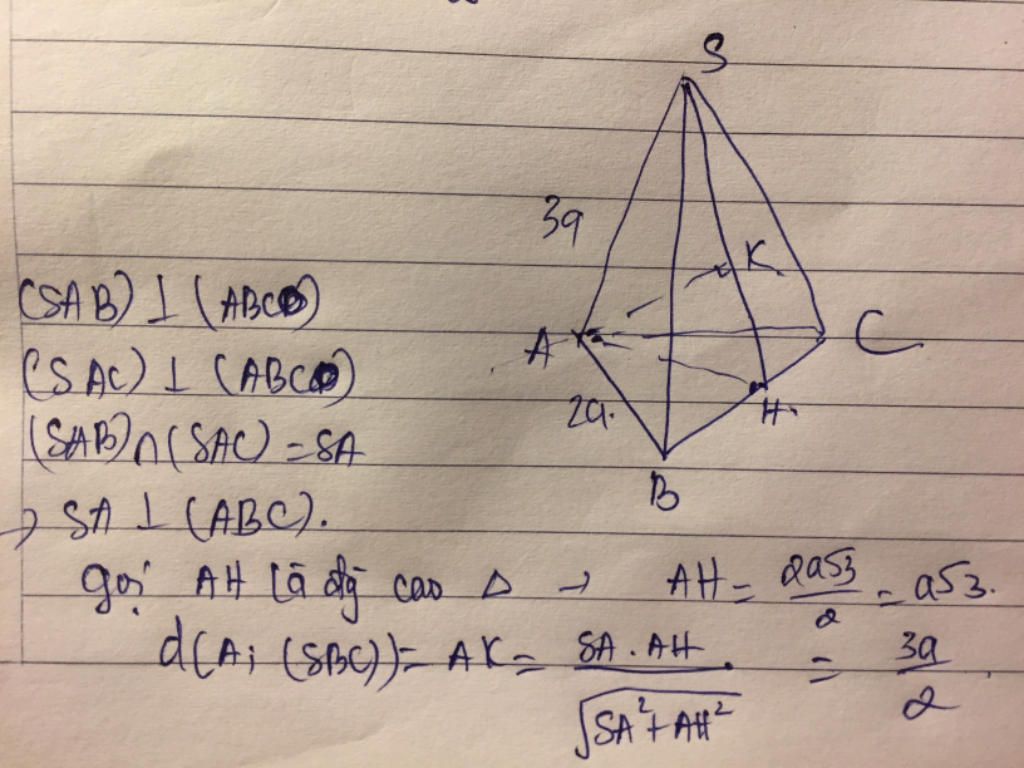 S
3a
K
(SAB) ⊥ (ABC)
A
C
(SAC) ⊥ (ABC)
2a.
H.
(SAB) ∩ (SAC) = SA
B
→ SA ⊥ (ABC).
gọi AH là đg cao Δ → AH = 2a√3/2 = a√3.
d(A; (SBC)) = AK = SA.AH/√(SA²+AH²) = 3a/2